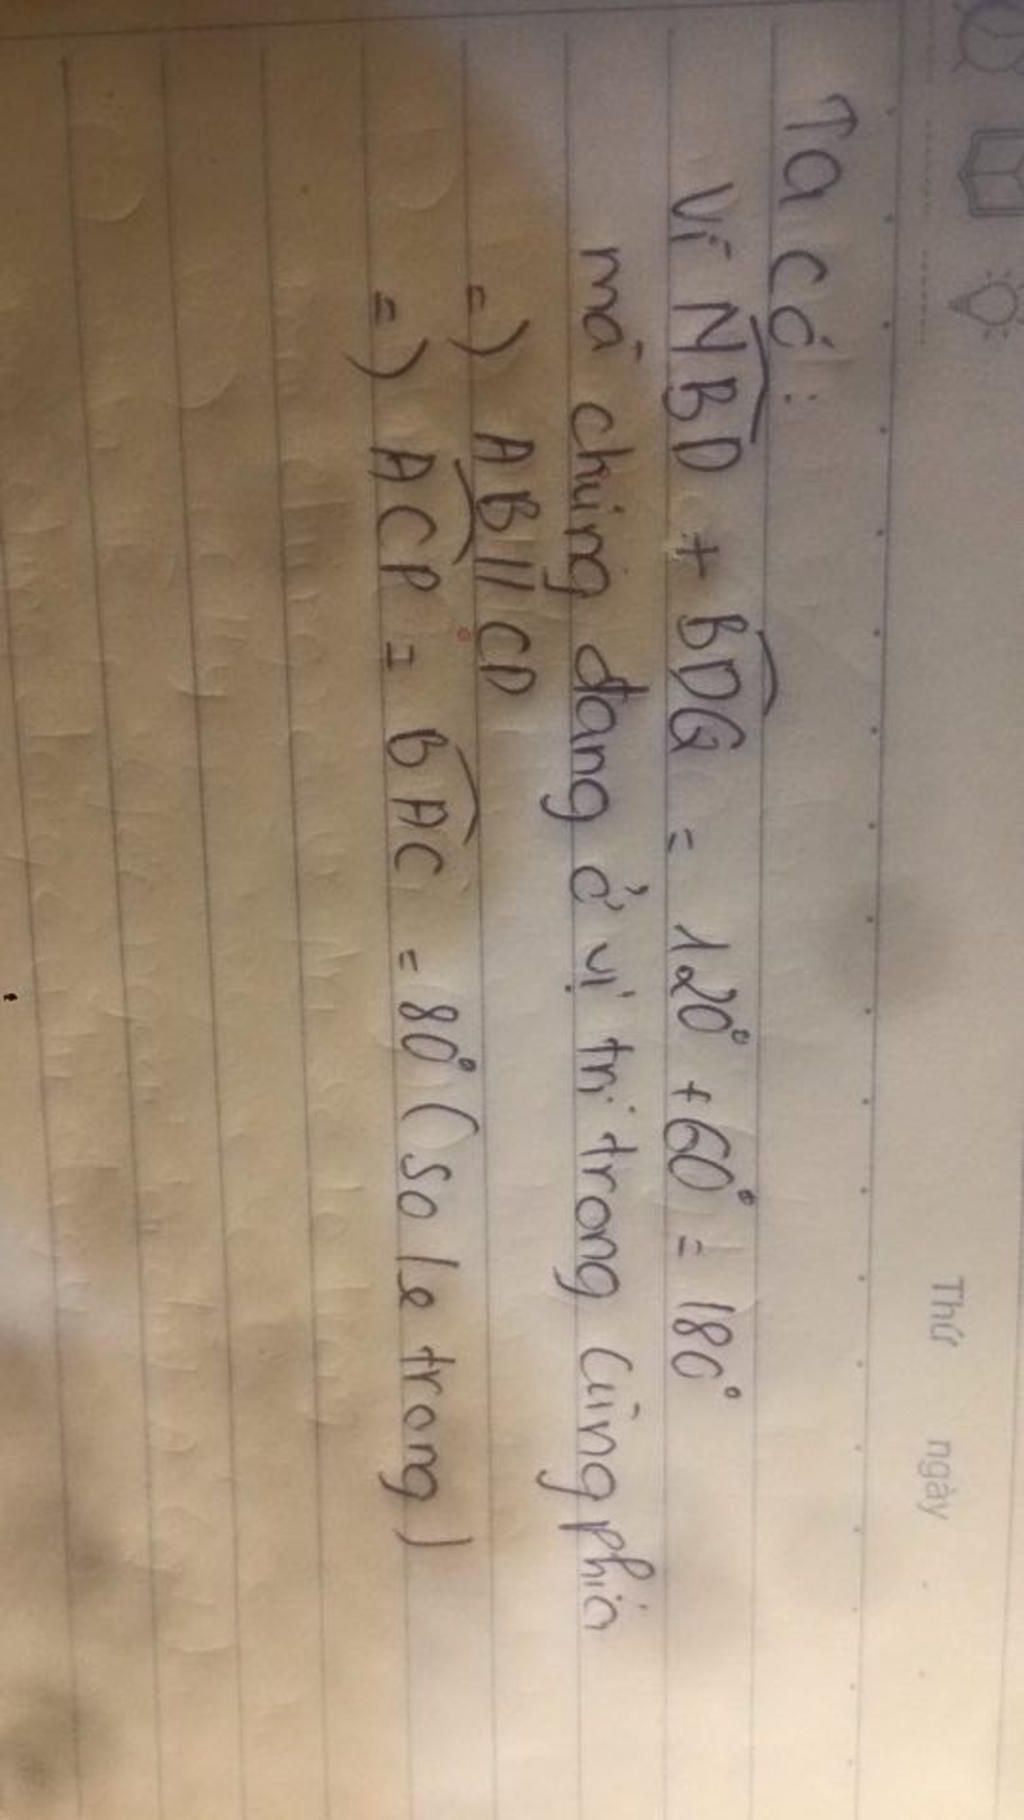 Thứ ngày
Ta có:
Vì NBD + BDQ = 120° + 60° = 180°
mà chúng đang ở vị trí trong cùng phía
=) AB // CD
=) ACP = BAC = 80° (so le trong)